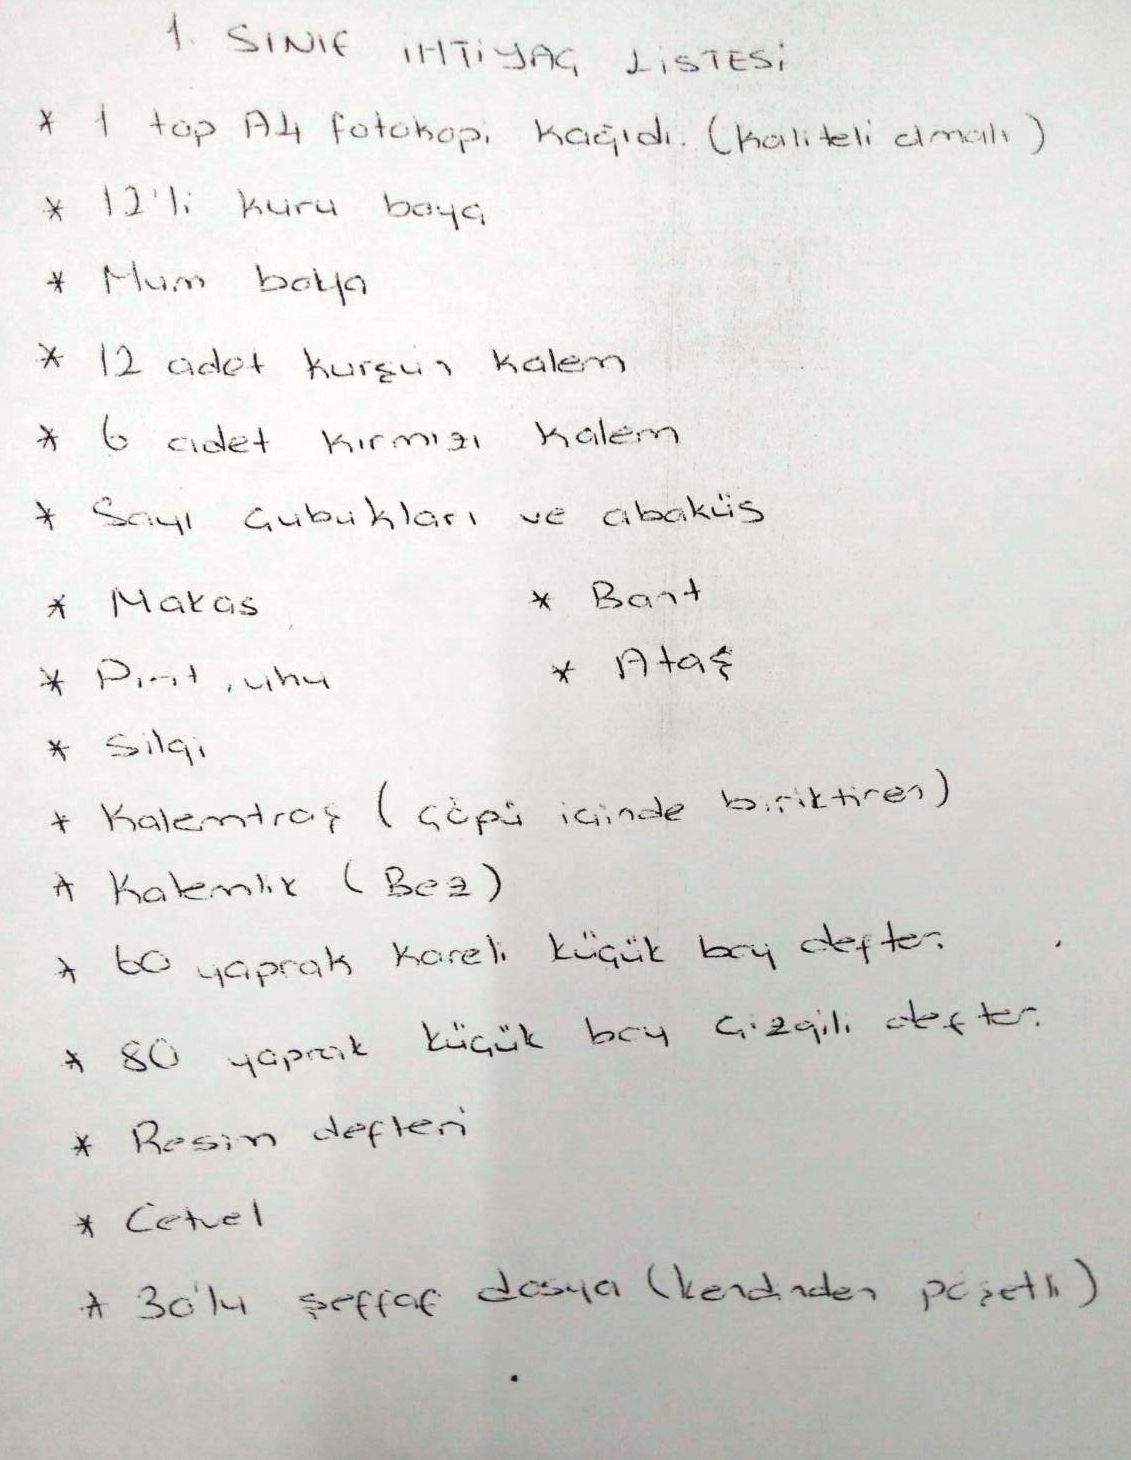 1. SINIF İHTİYAÇ LİSTESİ
* 1 top A4 fotokopi kağıdı. (kaliteli olmalı)
* 12'li kuru boya
* Mum boya
* 12 adet kurşun kalem
* 6 adet kırmızı kalem
* Sayı çubukları ve abaküs
* Makas * Bant
* Pirit, uhu * Ataş
* Silgi
* Kalemtraş (çöpü içinde biriktiren)
* Kalemlik (Bez)
* 60 yaprak kareli küçük boy defter.
* 80 yaprak küçük boy çizgili defter.
* Resim defteri
* Cetvel
* 30'lu şeffaf dosya (kendinden poşetli)